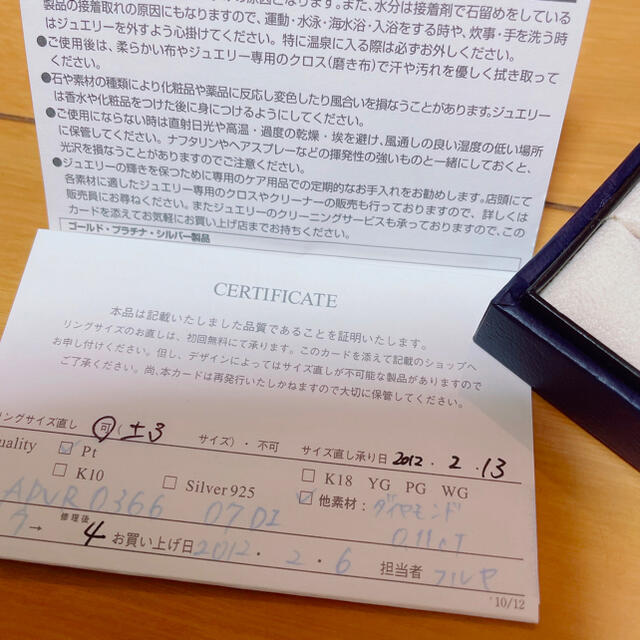 の原因となります。また、水分は接着剤で石留めをしている
製品の接着取れの原因にもなりますので、運動・水泳・海水浴・入浴をする時や、炊事・手を洗う時
はジュエリーを外すよう心掛けてください。特に温泉に入る際は必ずお外しください。
●ご使用後は、柔らかい布やジュエリー専用のクロス(磨き布)で汗や汚れを優しく拭き取って
ください。
●石や素材の種類により化粧品や薬品に反応し変色したり風合いを損なうことがあります。ジュエリー
は香水や化粧品をつけた後に身につけるようにしてください。
●ご使用にならない時は直射日光や高温・過度の乾燥・埃を避け、風通しの良い湿度の低い場所
に保管してください。ナフタリンやヘアスプレーなどの揮発性の強いものと一緒にしておくと、
光沢を損なうことがありますのでご注意ください。
●ジュエリーの輝きを保つために専用のケア用品での定期的なお手入れをお勧めします。店頭にて
各素材に適したジュエリー専用のクロスやクリーナーの販売も行っておりますので、詳しくは
販売員にお尋ねください。またジュエリーのクリーニングサービスも承っておりますので、この
カードを添えてお気軽にお買い上げ店までお持ちください。
ゴールド・プラチナ・シルバー製品
CERTIFICATE
本品は記載いたしました品質であることを証明いたします。
リングサイズのお直しは、初回無料にて承ります。このカードを添えて記載のショップへ
お申し付けください。但し、デザインによってはサイズ直しが不可能な製品がありますので
ご了承ください。尚、本カードは再発行いたしかねますので大切に保管してください。
リングサイズ直し 可(±3 サイズ)・不可 サイズ直し承り日 2012.2.13
uality Pt
K10 Silver925 K18 YG PG WG
他素材：ダイヤモンド
ADVR0366 07DI 0.11cT
7→ 修理後 4 お買い上げ日 2012.2.6 担当者 フルヤ
'10/12